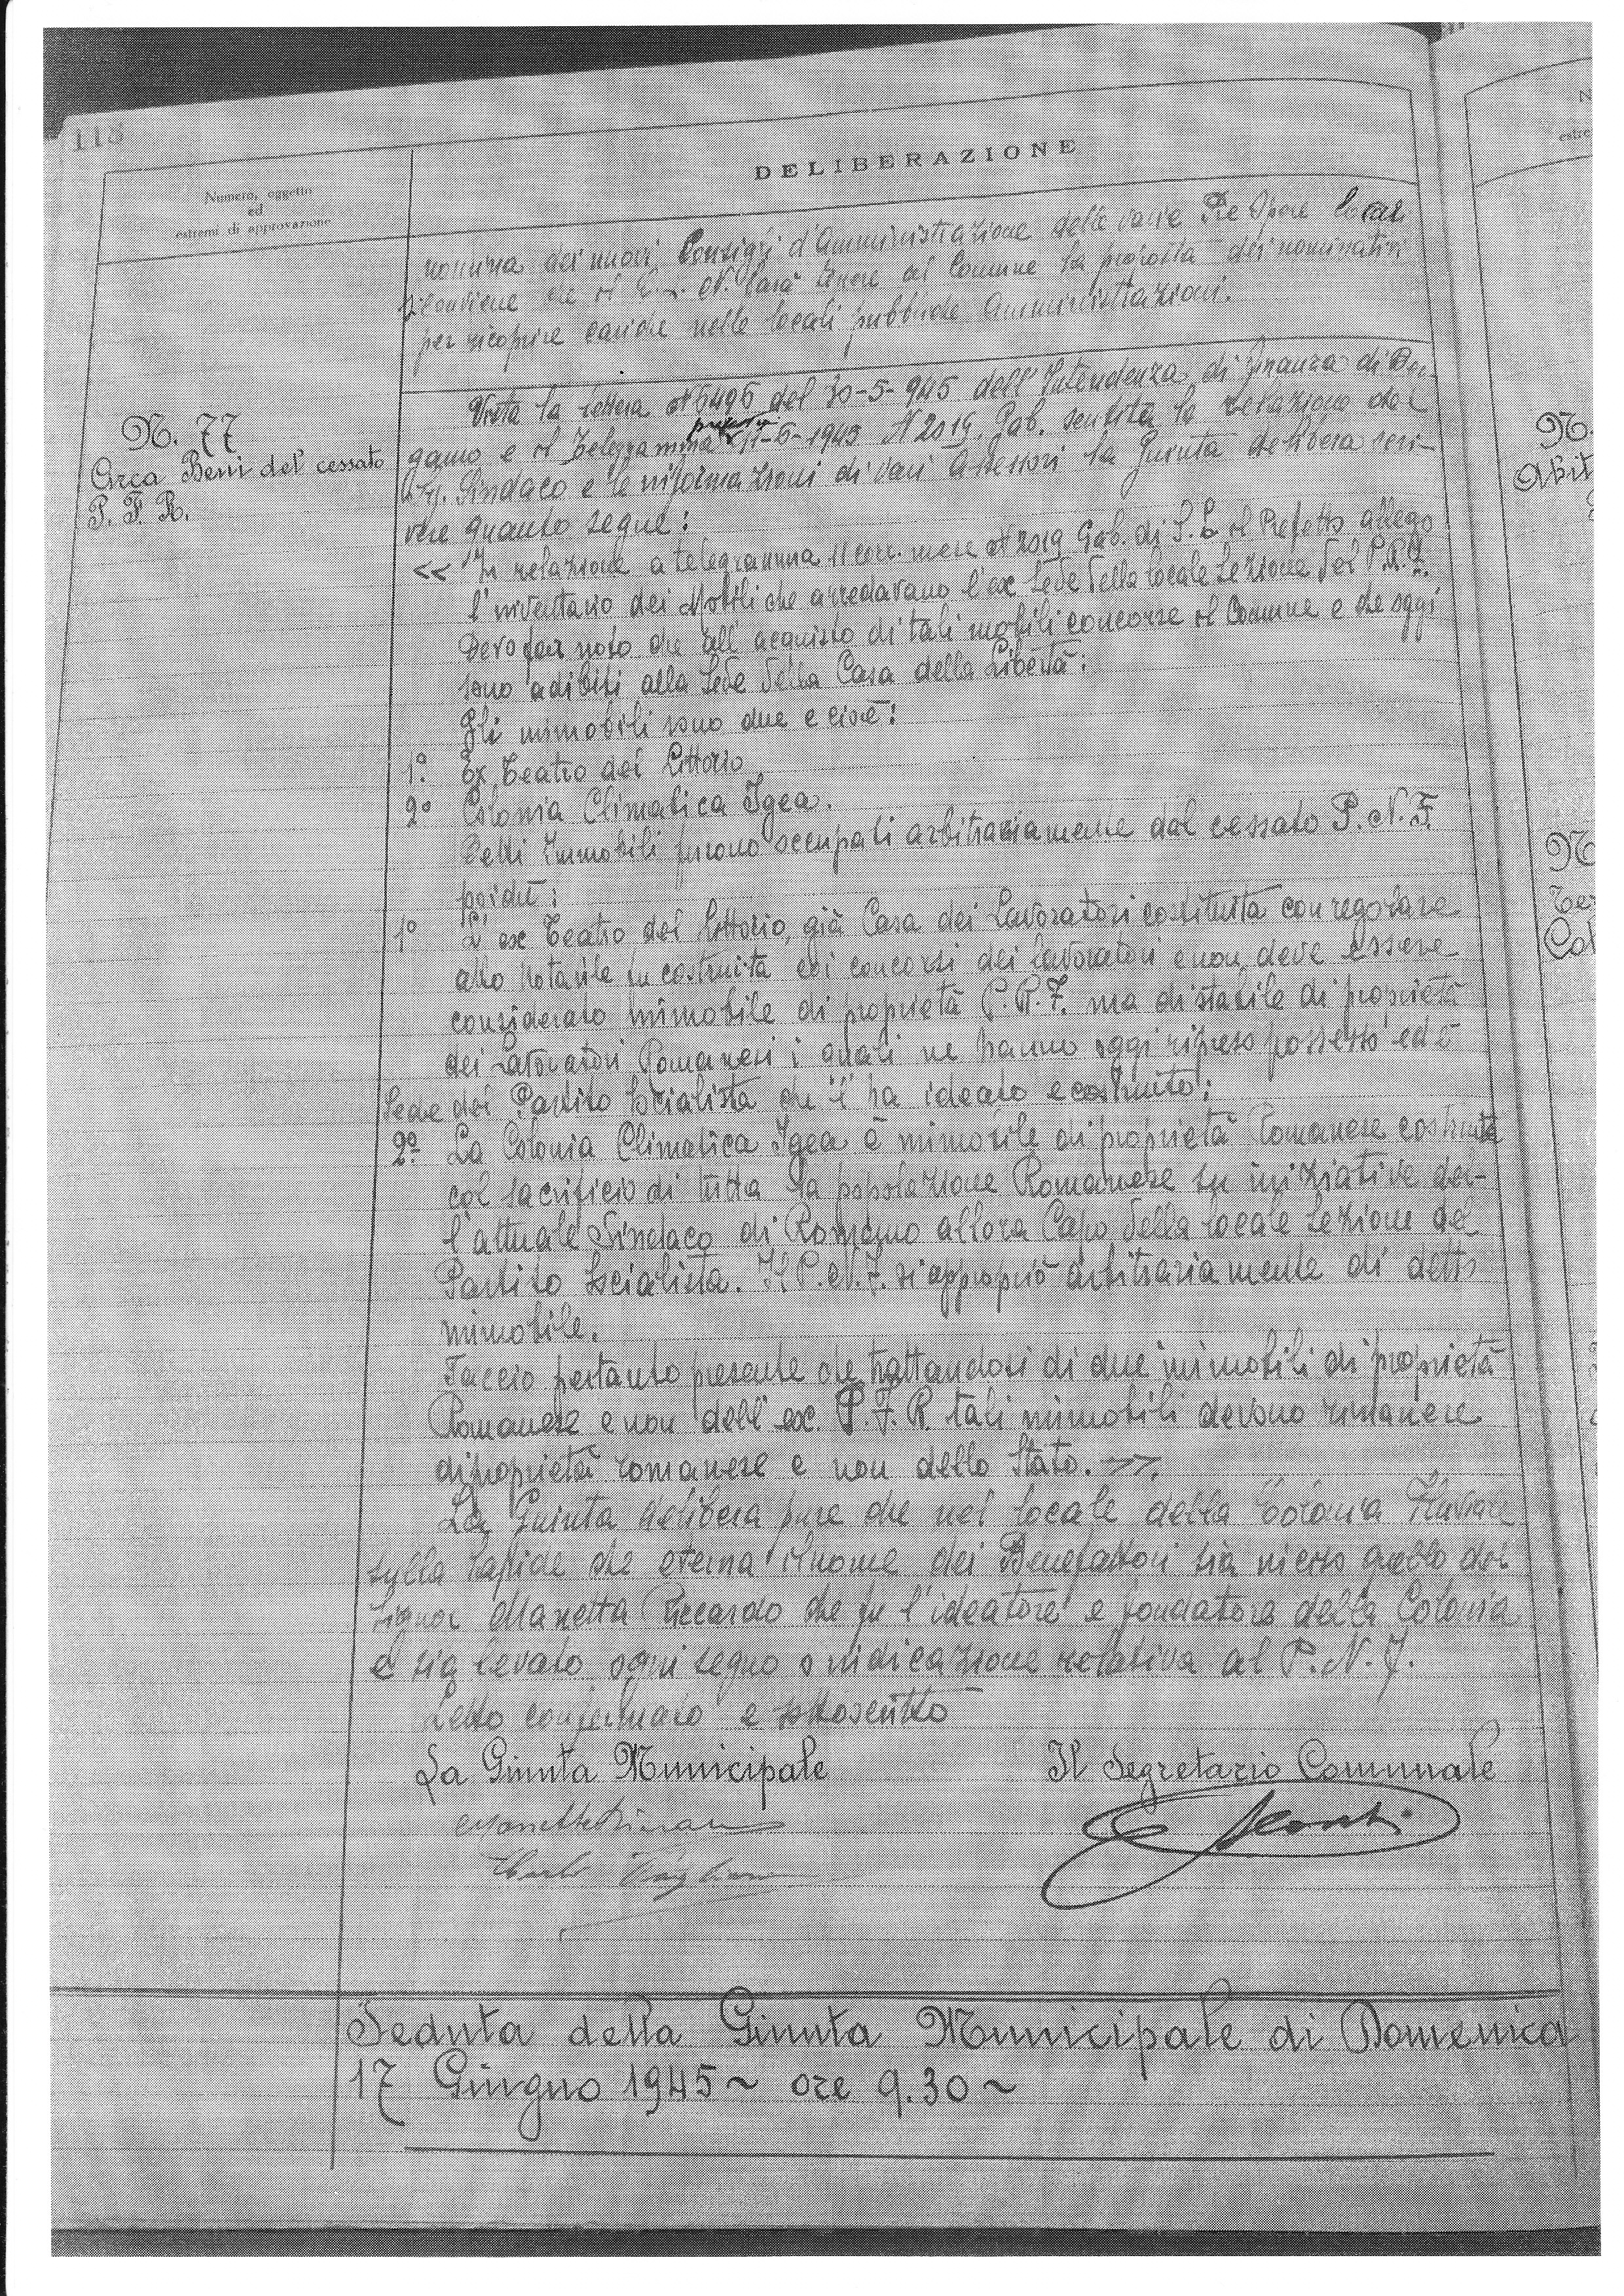 118
Numero, oggetto
ed
estremi di approvazione
DELIBERAZIONE
nomina dei nuovi Consigli d'Amministrazione delle varie Pie Opere locali
che il C. L. N. farà tenere al Comune la proposta dei nominativi
per ricoprire cariche nelle locali pubbliche Amministrazioni.
N. 77
Circa Beni del cessato
P. F. R.
Vista la lettera N 6496 del 30-5-945 dell'Intendenza di finanza di Ber-
gamo e il Telegramma 11-6-1945 N 2019. Gab. sentita la relazione del
Sig. Sindaco e le informazioni di vari Assessori la Giunta delibera scri-
vere quanto segue:
<< In relazione a telegramma 11 corr. mese N 2019 Gab. di S. E. il Prefetto allego
l'inventario dei Mobili che arredavano l'ex sede della locale sezione del P.R.F.
Devo far noto che all'acquisto di tali mobili concorse il Comune e che oggi
sono adibiti alla sede della Casa della Libertà:
Gli immobili sono due e cioè:
1º. Ex Teatro del Littorio
2º Colonia Climatica Igea.
Detti Immobili furono occupati arbitrariamente dal cessato P. N. F.
poichè:
1º L'ex Teatro del Littorio, già Casa dei Lavoratori costituita con regolare
atto notarile fu costruita coi concorsi dei lavoratori e non deve essere
considerato immobile di proprietà P. R. F. ma di stabile di proprietà
dei Lavoratori Romanesi i quali ne hanno oggi ripreso possesso ed è
sede del Partito Socialista che l'ha ideato e costruito;
2º. La Colonia Climatica Igea è immobile di proprietà Romanese costruita
col sacrificio di tutta la popolazione Romanese su iniziative del-
l'attuale Sindaco di Romano allora Capo della locale sezione del
Partito Socialista. Il P. N. F. si appropriò arbitrariamente di detto
immobile.
Faccio pertanto presente che trattandosi di due immobili di proprietà
Romanese e non dell'ex. P. F. R. tali immobili devono rimanere
di proprietà romanese e non dello Stato. >>.
La Giunta delibera pure che nel locale della Colonia Fluviale
sulla lapide che eterna il nome dei Benefattori sia inciso quello del
Signor Manetta Riccardo che fu l'ideatore e fondatore della Colonia
e sia levato ogni segno o indicazione relativa al P. N. F.
Letto confermato e sottoscritto
La Giunta Municipale Il Segretario Comunale
Seduta della Giunta Municipale di Domenica
17 Giugno 1945 ~ ore 9.30 ~